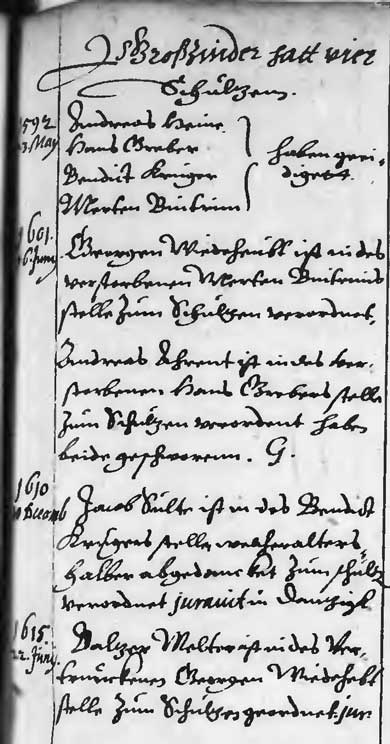 Großzinder hatt vier
Schultzen.
1592 Andreas Heine
3. May Hans Greber
haben geei-
Bendict Krüger
diget.
Merten Buttrim
1601.
6. Juny Georgen Wiedehübl ist in des
verstorbenen Merten Buttrims
stelle Zum Schultzen verordnet.
Andreas Ahrent ist in des ver-
storbenen Hans Grebers stelle
Zum Schultzen verordent haben
beide geschworenn. G.
1610
Decemb Jacob Sülte ist in des Bendict
Krügers stelle, welcher alters
halber abgedancket Zum schultz
verordnet juravit in Dantzigk
1615
22. Juny. Baltzer Melter ist in des Ver-
trunckenen Georgen Wiedehübl
stelle Zum Schultzen geordnet. jur.